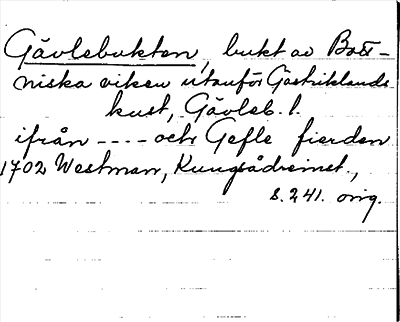 Gävlebukten, bukt av Bott-
niska viken utanför Gästriklands
kust, Gävleb. l.
ifrån ---- och Gefle fierden
1702 Westman, Kungsådreinet.,
s. 241. orig.